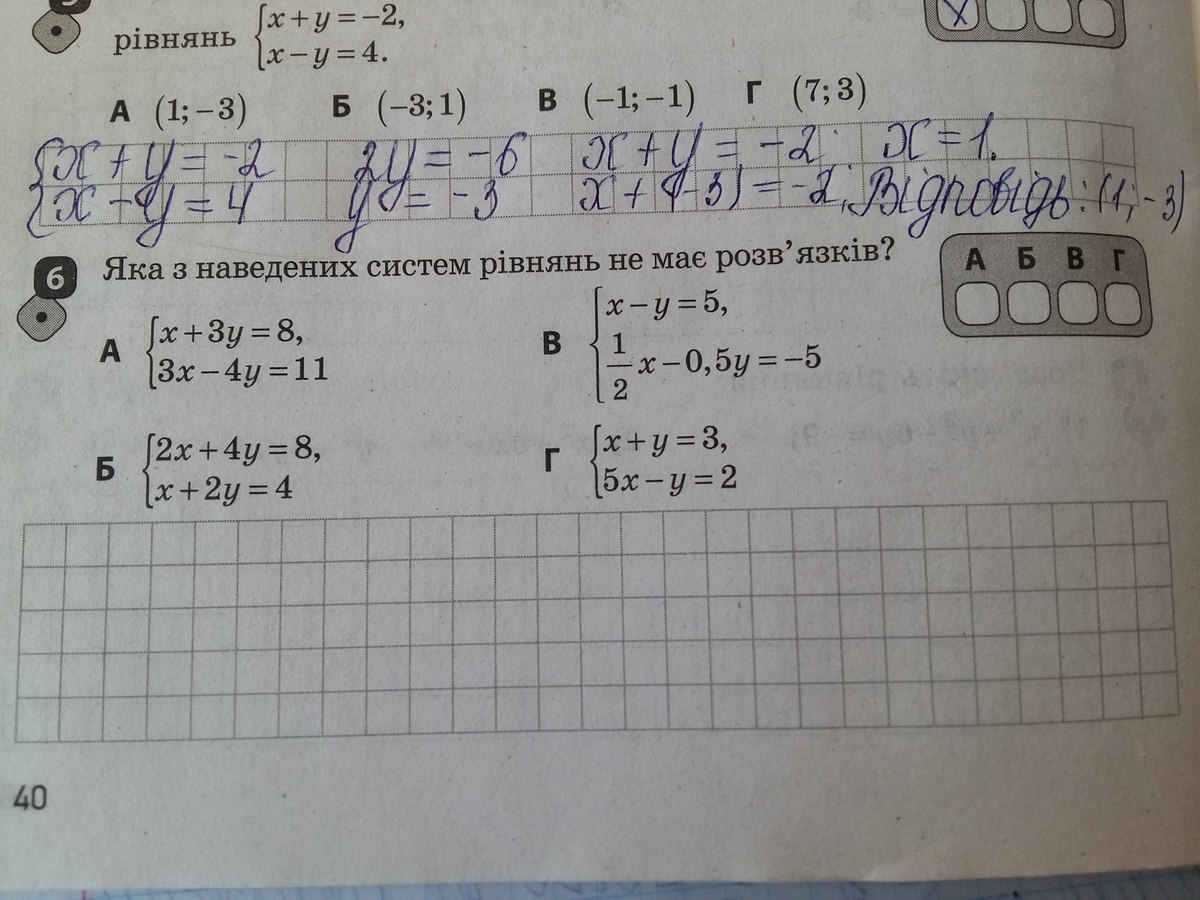 рівнянь {x + y = −2,
x − y = 4.
А (1; −3) Б (−3; 1) В (−1; −1) Г (7; 3)
X
{x + y = -2 2y = -6 x + y = -2; x = 1.
x - y = 4 y = -3 x + (-3) = -2; Відповідь: (1; -3)
6 Яка з наведених систем рівнянь не має розв’язків?
А Б В Г
А {x + 3y = 8,
3x − 4y = 11
В {x − y = 5,
1/2 x − 0,5y = −5
Б {2x + 4y = 8,
x + 2y = 4
Г {x + y = 3,
5x − y = 2
40